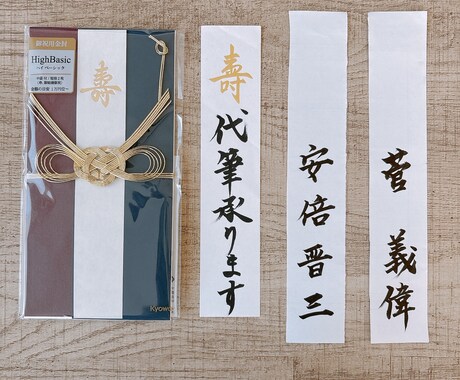 御祝用金封
HighBasic
ハイベーシック
寿
Kyowa
壽
代筆承ります
安倍晋三
菅義偉